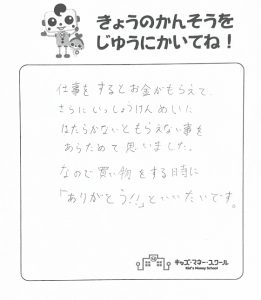 きょうのかんそうを
じゆうにかいてね！
仕事をするとお金がもらえて、
さらにいっしょうけんめいに
はたらかないともらえない事を
あらためて思いました。
なので買い物をする時に
「ありがとう!!」といいたいです。
キッズ・マネー・スクール
Kid's Money School